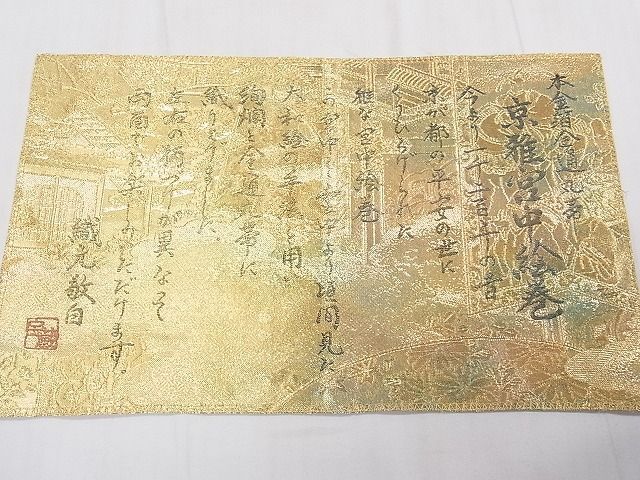 本金箔全通丸帯
京雅宮中絵巻
今より一千二百年の昔
京が都の平安の世に
くりひろげられた
雅な宮中絵巻
この雲中を雲中より垣間見た
大和絵の手法を用い
絢爛と全通丸帯に
織りなしました。
左右の柄が異なって
両面でお楽しみいただけます。
織元敬白